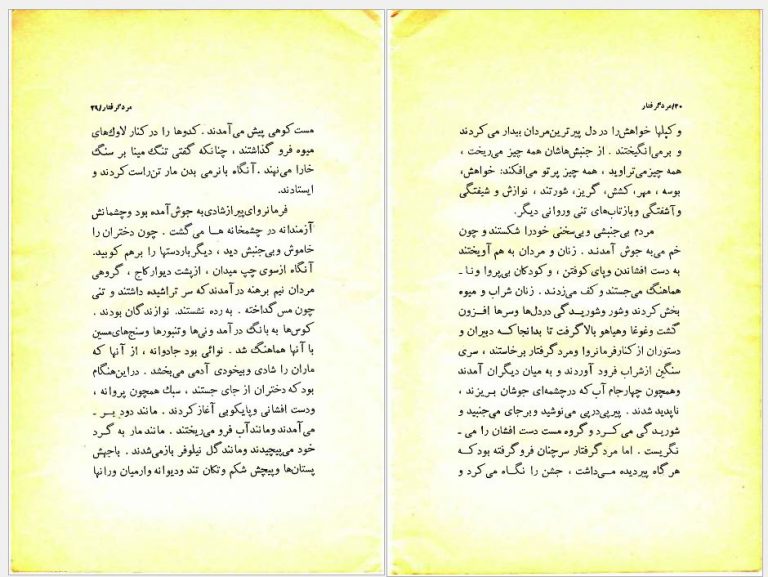 مرد گرفتار/۲۹
مست کوهی پیش می‌آمدند . کدوها را در کنار لاوك‌های
میوه فرو گذاشتند ، چنانکه گفتی تنگ مینا بر سنگ
خارا می‌نهند . آنگاه بانرمی بدن مار تن‌راست کردند و
ایستادند.
فرمانروای‌پیرازشادی به جوش آمده بود وچشمانش
آزمندانه در چشمخانه هـا می‌گشت . چون دختران را
خاموش وبی‌جنبش دید ، دیگرباردستها را برهم کوبید.
آنگاه ازسوی چپ میدان ، ازپشت دیوارکاج ، گروهی
مردان نیم برهنه درآمدندکه سر تراشیده داشتند و تنی
چون مس گداخته . به رده نشستند. نوازندگان بودند .
کوس‌ها به بانگ درآمد ونی‌ها وتنبورها وسنج‌های‌مسین
با آنها هماهنگ شد . نوائی بود جادوانه ، از آنها که
ماران را شادی وبیخودی آدمی می‌بخشد . دراین‌هنگام
بودکه دختران از جای جستند ، سبك همچون پروانه ،
ودست افشانی وپایکوبی آغازکردند . مانند دود بر ـ
می‌آمدند ومانندآب فرو می‌ریختند . مانند مار به گرد
خود می‌پیچیدند ومانندگل نیلوفر بازمی‌شدند . باجهش
پستان‌ها وپیچش شکم وتکان تند ودیوانه وارمیان ورانها
۳۰/مرد گرفتار
و کپلها خواهش‌را در دل پیرترین‌مردان بیدار می‌کردند
و برمی‌انگیختند . از جنبش‌هاشان همه چیز می‌ریخت ،
همه چیزمی‌تراوید ، همه چیز پرتو می‌افکند: خواهش،
بوسه ، مهر، کشش، گریز، شورتند ، نوازش و شیفتگی
وآشفتگی وبازتاب‌های تنی وروانی دیگر.
مردم بی‌جنبشی وبی‌سخنی خودرا شکستند و چون
خم می‌به جوش آمدنـد . زنان و مردان به هم آویختند
به دست افشاندن وپای کوفتن ، و کودکان بی‌پروا ونا ـ
هماهنگ می‌جستند و کف می‌زدنـد . زنان شراب و میوه
بخش کردند وشور وشوریـدگی دردل‌ها وسرها افـزون
گشت وغوغا وهیاهو بالاگرفت تا بدانجا کـه دبیران و
دستوران از کنارفرمانروا ومرد گرفتار برخاستند ، سری
سنگین ازشراب فرود آوردند و به میان دیگران آمدند
وهمچون چهارجام آب‌که درچشمه‌ای جوشان بریزند ،
ناپدید شدند . پیرپی‌درپی می‌نوشید وبرجای می‌جنبید و
شوریـدگی می‌کـرد و گروه مست دست افشان را می ـ
نگریست . اما مرد گرفتار سرچنان فرو گرفته بودکـه
هرگاه پیردیده مـی‌داشت ، جشن را نگـاه می‌کرد و